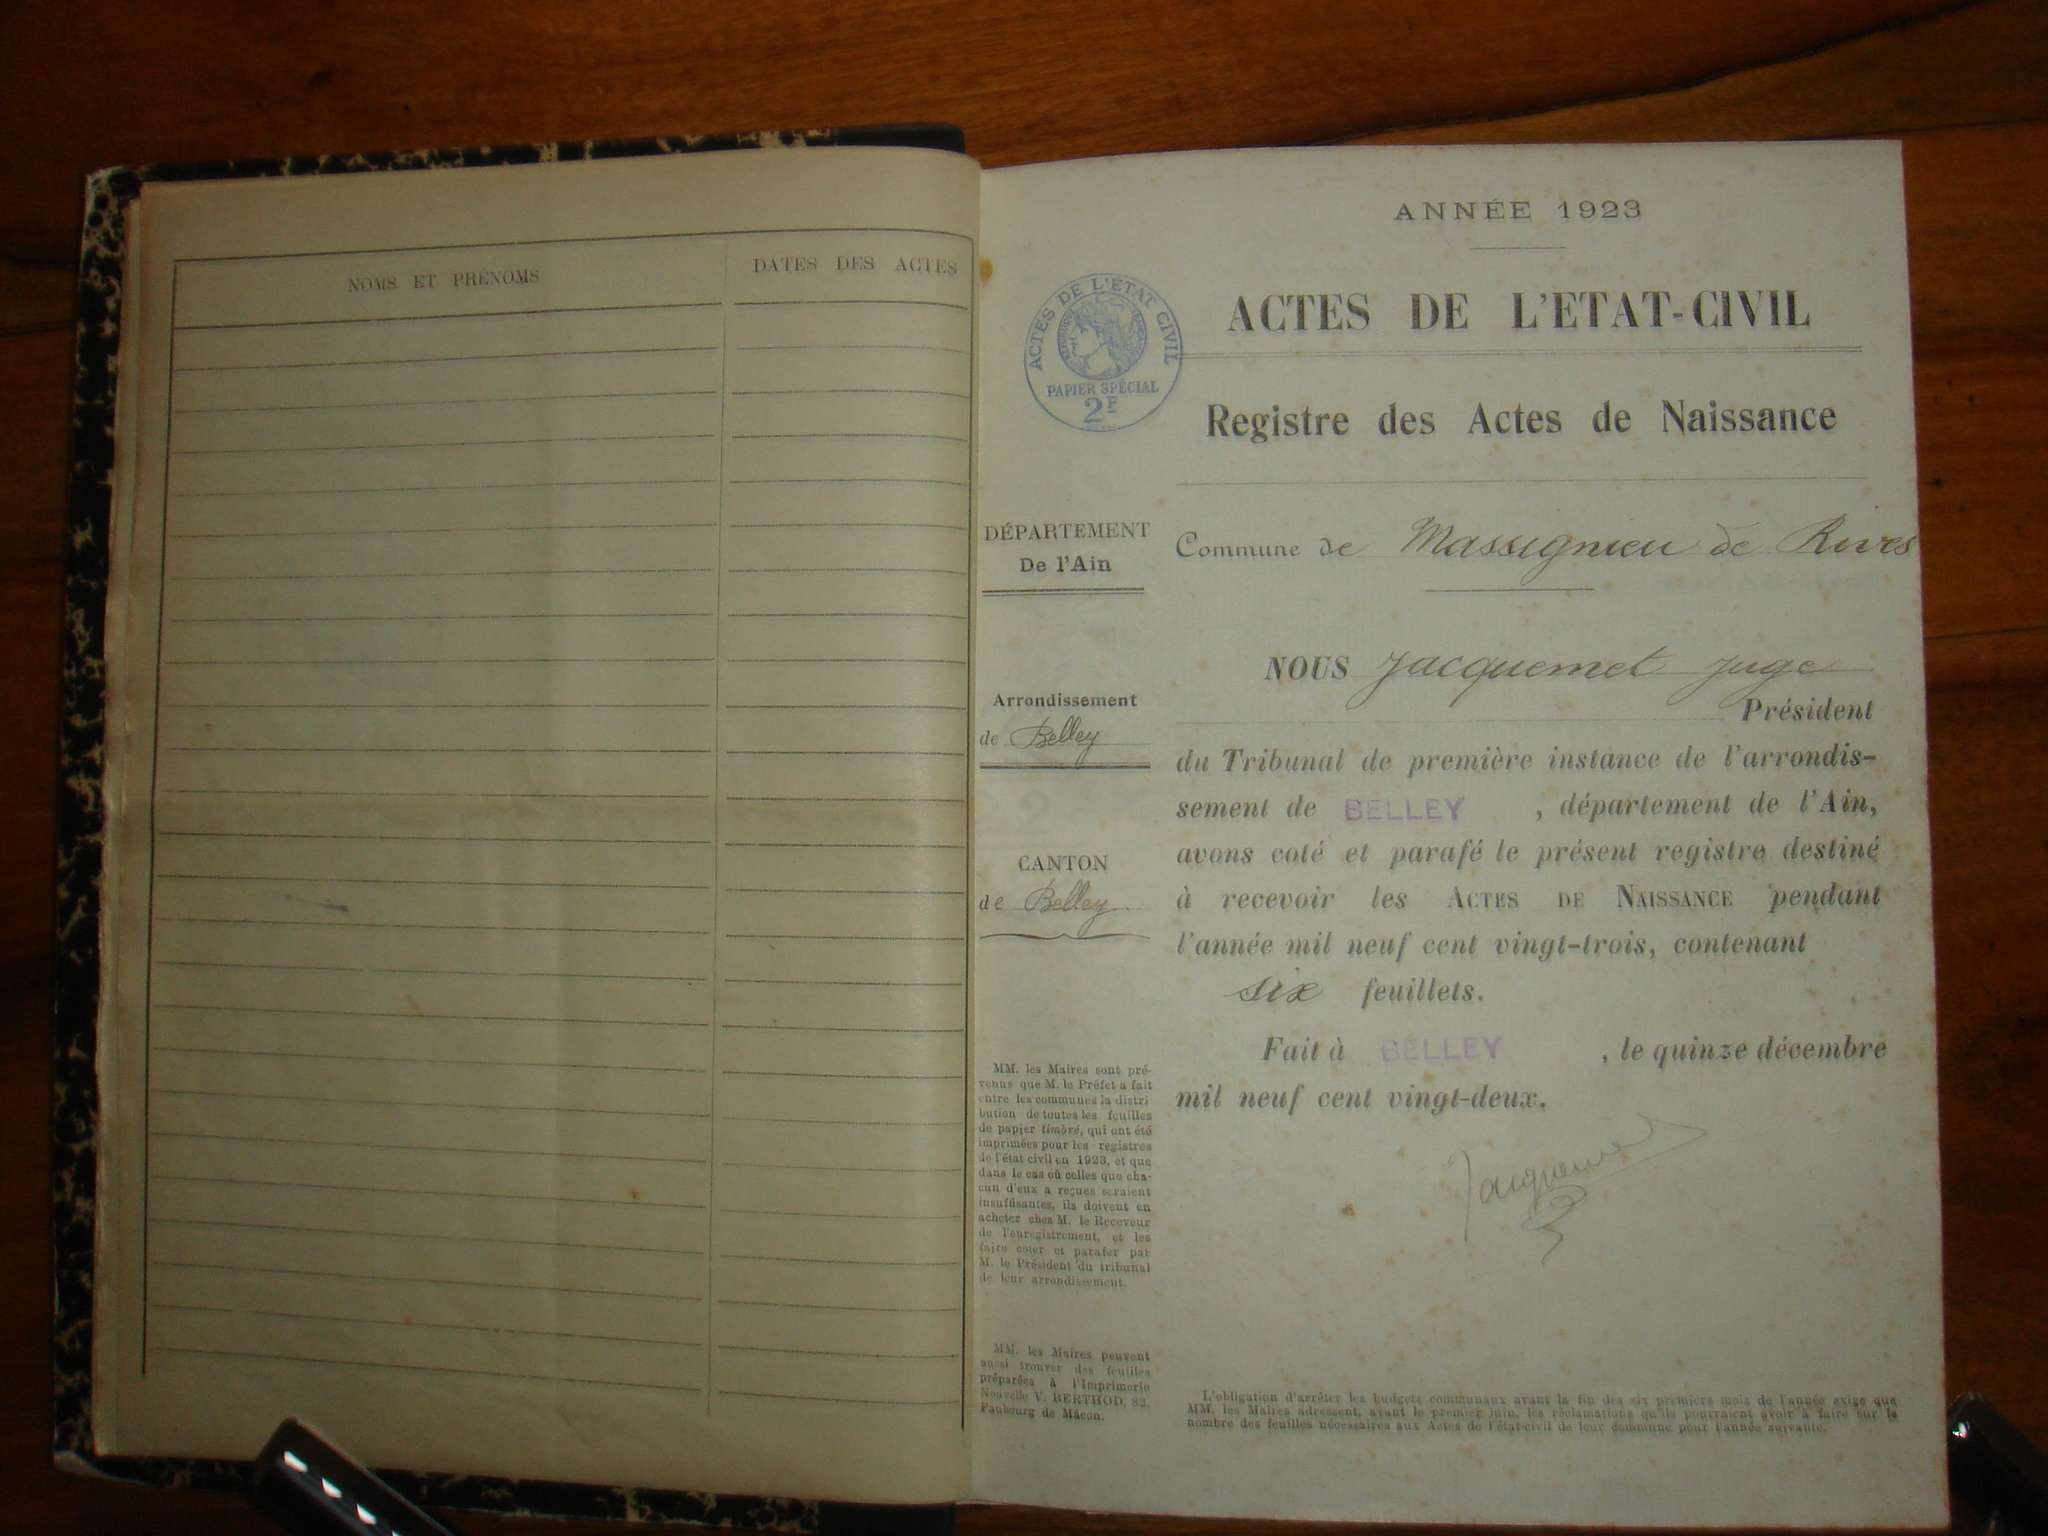 NOMS ET PRÉNOMS
DATES DES ACTES
ANNÉE 1923
ACTES DE L'ETAT-CIVIL
ACTES DE L'ÉTAT CIVIL
PAPIER SPÉCIAL
2F
Registre des Actes de Naissance
DÉPARTEMENT
De l'Ain
Commune de Massignieu de Rives
Arrondissement
de Belley
CANTON
de Belley
NOUS Jacquemet Juge
Président
du Tribunal de première instance de l'arrondis-
sement de BELLEY, département de l'Ain,
avons coté et parafé le présent registre destiné
à recevoir les ACTES DE NAISSANCE pendant
l'année mil neuf cent vingt-trois, contenant
six feuillets.
Fait à BELLEY, le quinze décembre
mil neuf cent vingt-deux.
Jacquemet
MM. les Maires sont pré-
venus que M. le Préfet a fait
entre les communes la distri
bution de toutes les feuilles
de papier timbré, qui ont été
imprimées pour les registres
de l'état civil en 1923, et que
dans le cas où celles que cha-
cun d'eux a reçues seraient
insuffisantes, ils doivent en
acheter chez M. le Receveur
de l'enregistrement, et les
faire coter et parafer par
M. le Président du tribunal
de leur arrondissement.
MM. les Maires peuvent
aussi trouver des feuilles
préparées à l'Imprimerie
Nouvelle V. BERTHOD, 82,
Faubourg de Mâcon.
L'obligation d'arrêter les budgets communaux avant la fin des six premiers mois de l'année exige que
MM. les Maires adressent, avant le premier juin, les réclamations qu'ils pourraient avoir à faire sur le
nombre des feuilles nécessaires aux Actes de l'état-civil de leur commune pour l'année suivante.